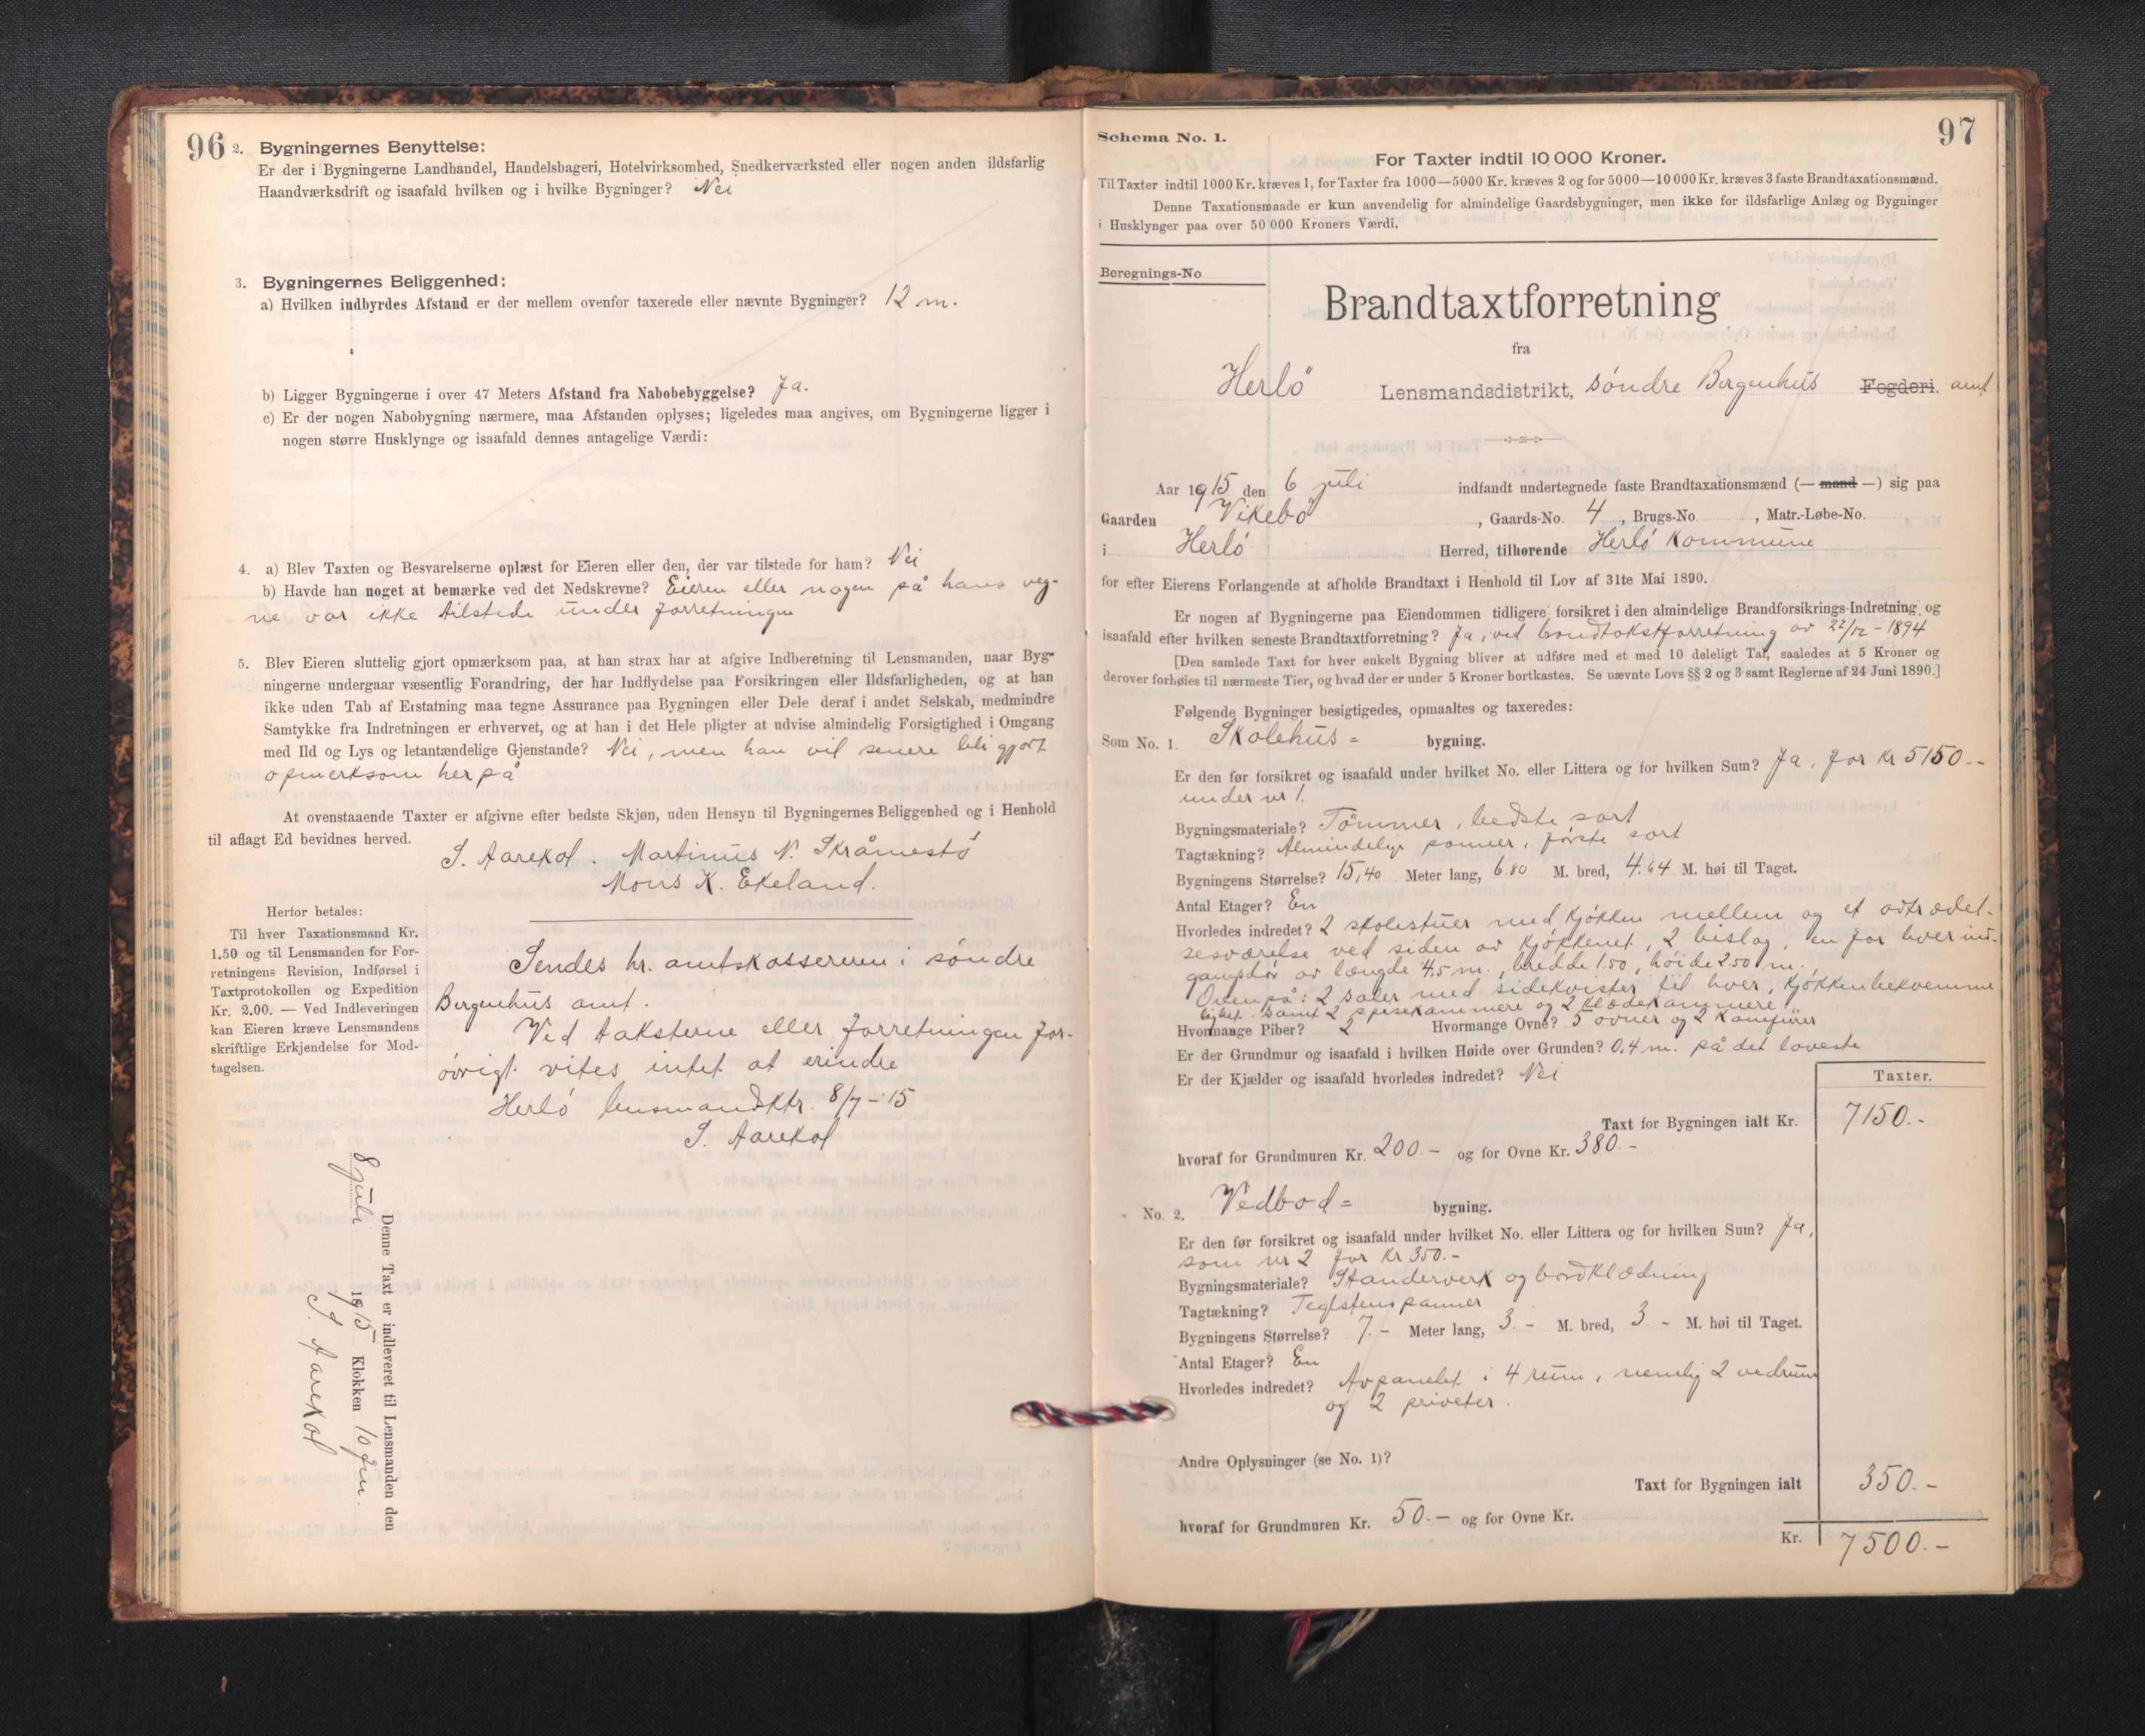 96
2. Bygningernes Benyttelse:
Er der i Bygningerne Landhandel, Handelsbageri, Hotelvirksomhed, Snedkerværksted eller nogen anden ildsfarlig
Haandværksdrift og isaafald hvilken og i hvilke Bygninger? Nei
3. Bygningernes Beliggenhed:
a) Hvilken indbyrdes Afstand er der mellem ovenfor taxerede eller nævnte Bygninger? 12 m.
b) Ligger Bygningerne i over 47 Meters Afstand fra Nabobebyggelse? Ja.
c) Er der nogen Nabobygning nærmere, maa Afstanden oplyses; ligeledes maa angives, om Bygningerne ligger i
nogen større Husklynge og isaafald dennes antagelige Værdi:
4. a) Blev Taxten og Besvarelserne oplæst for Eieren eller den, der var tilstede for ham? Nei
b) Havde han noget at bemærke ved det Nedskrevne? Eieren eller nogen på hans veg-
ne var ikke tilstede under forretningen
5. Blev Eieren sluttelig gjort opmærksom paa, at han strax har at afgive Indberetning til Lensmanden, naar Byg-
ningerne undergaar væsentlig Forandring, der har Indflydelse paa Forsikringen eller Ildsfarligheden, og at han
ikke uden Tab af Erstatning maa tegne Assurance paa Bygningen eller Dele deraf i andet Selskab, medmindre
Samtykke fra Indretningen er erhvervet, og at han i det Hele pligter at udvise almindelig Forsigtighed i Omgang
med Ild og Lys og letantændelige Gjenstande? Nei, men han vil senere bli gjort
opmerksom herpå
At ovenstaaende Taxter er afgivne efter bedste Skjøn, uden Hensyn til Bygningernes Beliggenhed og i Henhold
til aflagt Ed bevidnes herved.
S. Aarekol. Martinus N. Skråmestø
Mons K. Ekeland.
Herfor betales:
Til hver Taxationsmand Kr.
1.50 og til Lensmanden for For-
retningens Revision, Indførsel i
Taxtprotokollen og Expedition
Kr. 2.00. — Ved Indleveringen
kan Eieren kræve Lensmandens
skriftlige Erkjendelse for Mod-
tagelsen.
Sendes hr. amtskassereren i søndre
Bergenhus amt.
Ved taksterne eller forretningen for-
øvrigt vites intet at erindre
Herlø lensmandsktr. 8/7-15
S. Aarekol
Denne Taxt er indleveret til Lensmanden den
8 juli 1915 Klokken 10 fm.
S. Aarekol
97
Schema No. 1.
For Taxter indtil 10 000 Kroner.
Til Taxter indtil 1000 Kr. kræves 1, for Taxter fra 1000—5000 Kr. kræves 2 og for 5000—10 000 Kr. kræves 3 faste Brandtaxationsmænd.
Denne Taxationsmaade er kun anvendelig for almindelige Gaardsbygninger, men ikke for ildsfarlige Anlæg og Bygninger
i Husklynger paa over 50 000 Kroners Værdi.
Beregnings-No
Brandtaxtforretning
fra
Herlø Lensmandsdistrikt, søndre Bergenhus Fogderi. amt
Aar 1915 den 6 juli indfandt undertegnede faste Brandtaxationsmænd (— mand —) sig paa
Gaarden Vikebø, Gaards-No. 4, Brugs-No. , Matr.-Løbe-No.
i Herlø Herred, tilhørende Herlø Kommune
for efter Eierens Forlangende at afholde Brandtaxt i Henhold til Lov af 31te Mai 1890.
Er nogen af Bygningerne paa Eiendommen tidligere forsikret i den almindelige Brandforsikrings-Indretning og
isaafald efter hvilken seneste Brandtaxtforretning? Ja, ved brandtakstforretning av 22/12-1894
[Den samlede Taxt for hver enkelt Bygning bliver at udføre med et med 10 deleligt Tal, saaledes at 5 Kroner og
derover forhøies til nærmeste Tier, og hvad der er under 5 Kroner bortkastes. Se nævnte Lovs §§ 2 og 3 samt Reglerne af 24 Juni 1890.]
Følgende Bygninger besigtigedes, opmaaltes og taxeredes:
Som No. 1. Skolehus= bygning.
Er den før forsikret og isaafald under hvilket No. eller Littera og for hvilken Sum? Ja, for kr 5150.-
under nr 1.
Bygningsmateriale? Tømmer, bedste sort
Tagtækning? Almindelige panner, første sort
Bygningens Størrelse? 15,40 Meter lang, 6.80 M. bred, 4.64 M. høi til Taget.
Antal Etager? En
Hvorledes indredet? 2 skolestuer med kjøkken mellem og et avtrædel-
sesværelse ved siden av kjøkkenet, 2 bislag, en for hver ind-
gangsdør av længde 4.5 m., bredde 1.50, høide 2.50 m.,
Ovenpå: 2 saler med sidekvister til hver, kjøkkenbekvemme
lighet samt 2 spisekammere og 2 klædekammere,
Hvormange Piber? 2 Hvormange Ovne? 5 ovner og 2 komfurer
Er der Grundmur og isaafald i hvilken Høide over Grunden? 0,4 m. på det laveste
Er der Kjælder og isaafald hvorledes indredet? Nei
Taxter.
Taxt for Bygningen ialt Kr. 7150.-
hvoraf for Grundmuren Kr. 200.- og for Ovne Kr. 380.-
No. 2. Vedbod= bygning.
Er den før forsikret og isaafald under hvilket No. eller Littera og for hvilken Sum? Ja,
som nr 2 for kr 350.-
Bygningsmateriale? Standerverk og bordklædning
Tagtækning? Teglstenspanner
Bygningens Størrelse? 7.- Meter lang, 3.- M. bred, 3.- M. høi til Taget.
Antal Etager? En
Hvorledes indredet? Avpanelet i 4 rum, nemlig 2 vedrum
og 2 priveter.
Andre Oplysninger (se No. 1)?
Taxt for Bygningen ialt 350.-
hvoraf for Grundmuren Kr. 50.- og for Ovne Kr.
Kr. 7500.-